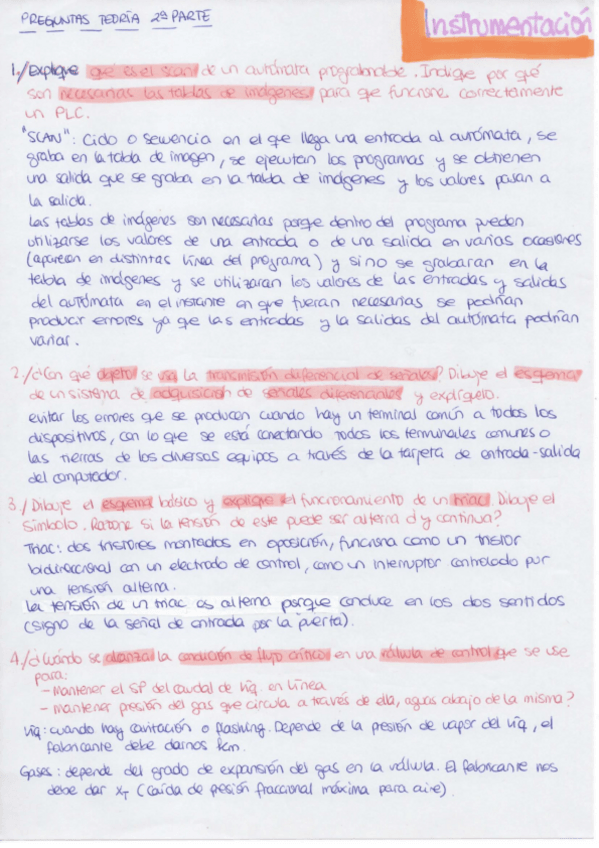 PREGUNTAS TEORÍA 2ª PARTE
Instrumentación
1./ Explique qué es el scan de un autómata programable. Indique por qué
son necesarias las tablas de imágenes para que funcione correctamente
un PLC.
"SCAN": Ciclo o secuencia en el que llega una entrada al autómata, se
graba en la tabla de imagen, se ejecutan los programas y se obtienen
una salida que se graba en la tabla de imágenes y los valores pasan a
la salida.
Las tablas de imágenes son necesarias porque dentro del programa pueden
utilizarse los valores de una entrada o de una salida en varias ocasiones
(aparecen en distintas línea del programa) y si no se grabaran en la
tabla de imágenes y se utilizaran los valores de las entradas y salidas
del autómata en el instante en que fueran necesarias se podrían
producir errores ya que las entradas y la salidas del autómata podrían
variar.
2./ ¿Con qué objeto se usa la transmisión diferencial de señales? Dibuje el esquema
de un sistema de adquisición de señales diferenciales y explíquelo.
evitar los errores que se producen cuando hay un terminal común a todos los
dispositivos, con lo que se está conectando todos los terminales comunes o
las tierras de los diversos equipos a través de la tarjeta de entrada-salida
del computador.
3./ Dibuje el esquema básico y explique el funcionamiento de un triac. Dibuje el
símbolo. Razone si la tensión de este puede ser alterna y continua?
Triac: dos tiristores montados en oposición, funciona como un tiristor
bidireccional con un electrodo de control, como un interruptor controlado por
una tensión alterna.
La tensión de un triac es alterna porque conduce en los dos sentidos
(signo de la señal de entrada por la puerta).
4./ ¿Cuándo se alcanza la condición de flujo crítico en una válvula de control que se use
para:
- Mantener el SP del caudal de líq. en línea
- mantener presión del gas que circula a través de ella, aguas abajo de la misma?
Líq: cuando hay cavitación o flashing. Depende de la presión de vapor del líq, el
fabricante debe darnos km.
Gases: depende del grado de expansión del gas en la válvula. El fabricante nos
debe dar XT (caída de presión fraccional máxima para aire).